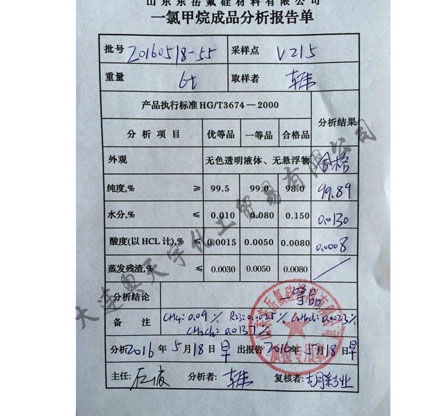 山东东岳氟硅材料有限公司
一氯甲烷成品分析报告单
批号 20160518-55 采样点 V215
重量 6t 取样者
产品执行标准 HG/T3674—2000 分析结果
分析项目 优等品 一等品 合格品
外观 无色透明液体、无悬浮物 合格
纯度,% ≥ 99.5 99.0 98.0 99.89
水分,% ≤ 0.010 0.080 0.150 0.0130
酸度(以HCL计),% ≤ 0.0015 0.0050 0.0080 0.0008
蒸发残渣,% ≤ 0.0030 0.0050 0.0080
分析结论 一等品
备注 CH4: 0.09%
分析 2016年5月18日早 出报告 2016年5月18日早
主任: 分析者: 复核者:
大连奥天宇化工贸易有限公司